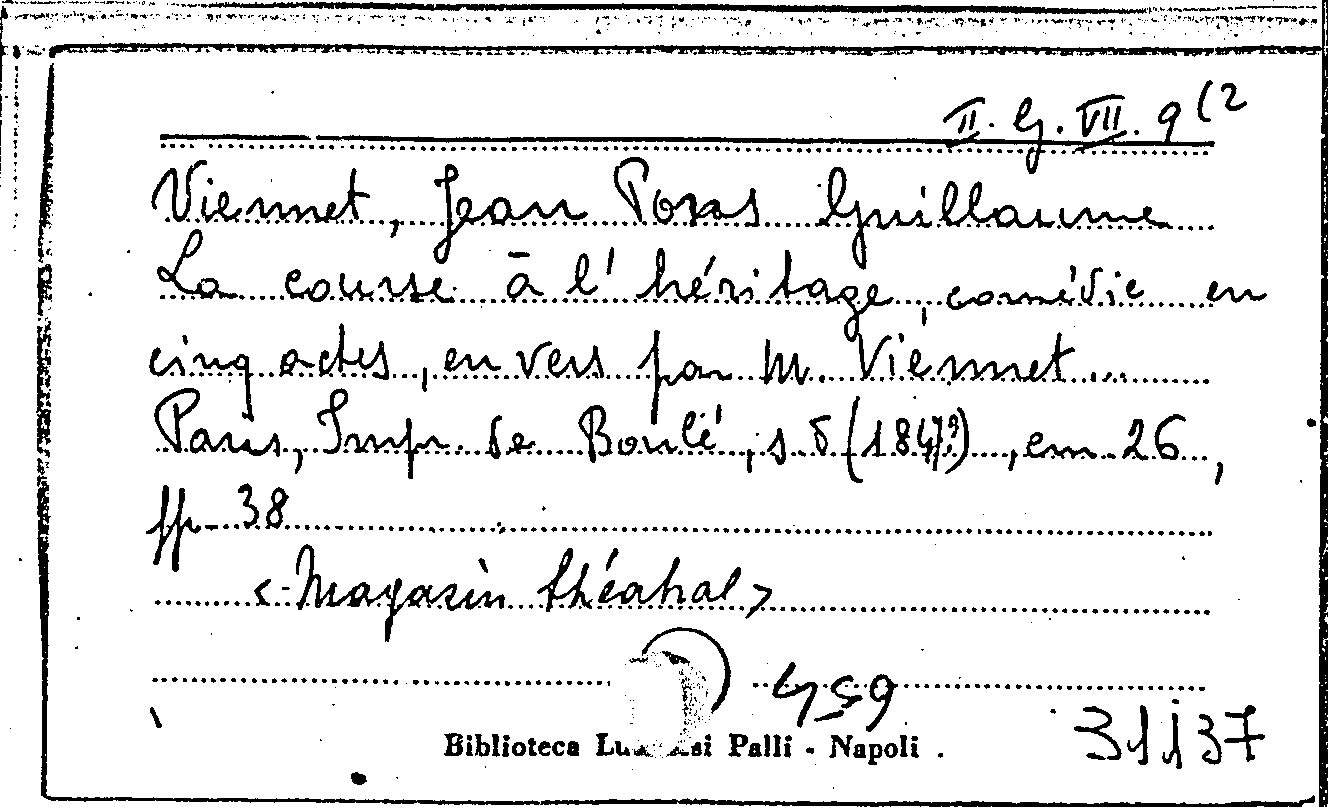 II. G. VII. 9 (2
Viennet, Jean Pons Guillaume
La course à l'héritage, comédie en
cinq actes, en vers par M. Viennet...
Paris, Impr. de Boulé, s.d (1847?), cm. 26,
pp. 38
<Magasin théatral>
459
31137
Biblioteca Palli - Napoli.